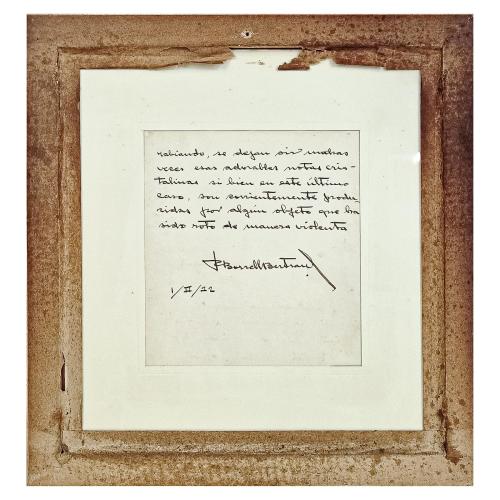 rabiando, se dejan oir muchas
veces esas adorables notas cris-
talinas si bien en este último
caso, son corrientemente produ-
cidas por algún objeto que ha
sido roto de manera violenta
P Borrell Bertran
1/II/22